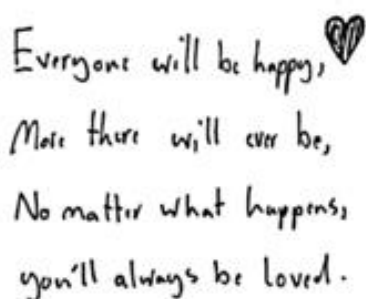 Everyone will be happy,
More there will ever be,
No matter what happens,
you'll always be loved.